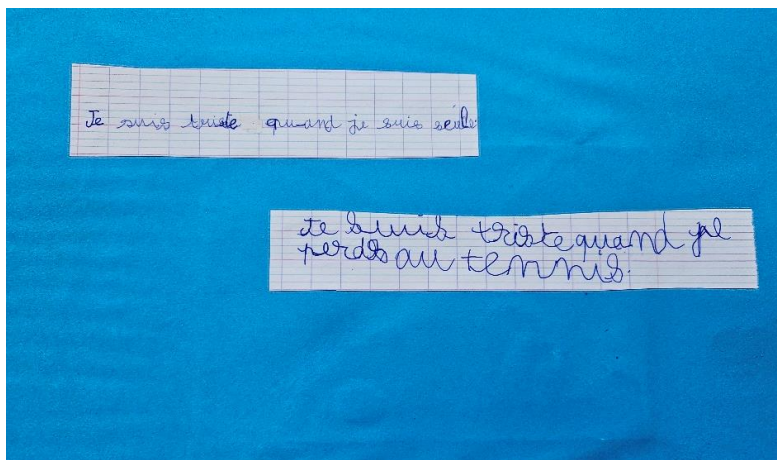 Je suis triste quand je suis seule.
Je suis triste quand je
perds au tennis.